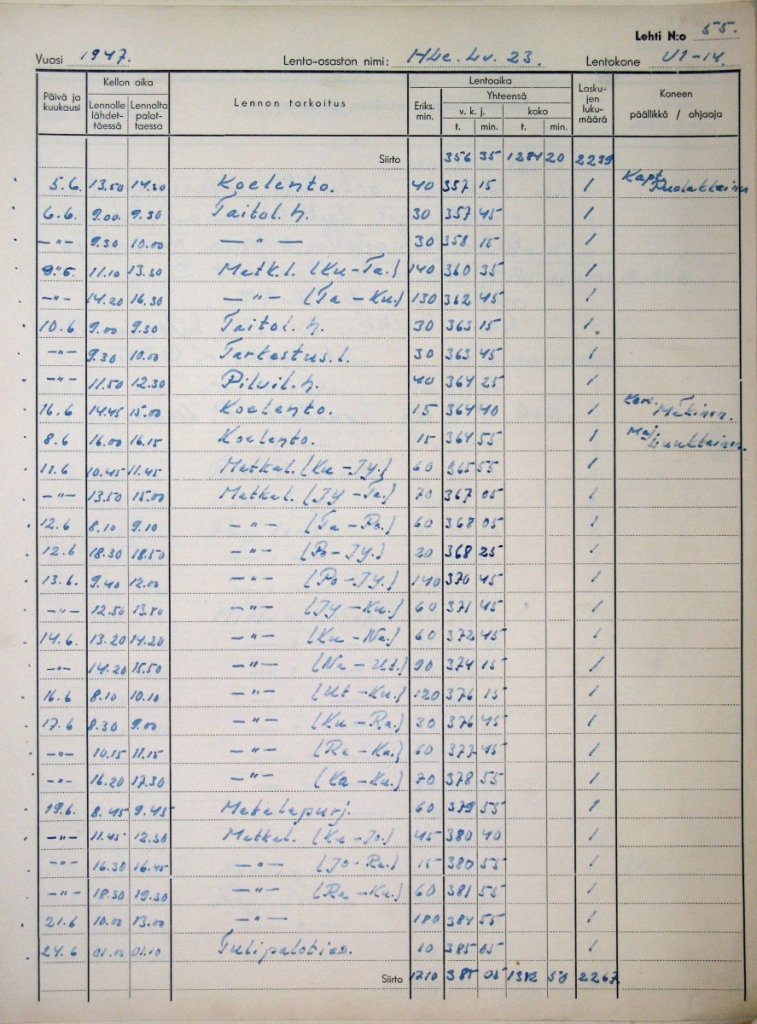 Lehti N:o 55.
Vuosi 1947. Lento-osaston nimi: HLe.Lv. 23. Lentokone
Päivä ja kuukausi Kellon aika Lennolle lähdettäessä Lennolta palattaessa Lennon tarkoitus Eriks. min. Lentoaika Yhteensä v. k. j. t. min. koko t. min. Laskujen lukumäärä Koneen päällikkö / ohjaaja
Siirto 356 35 1284 20 2239
5.6. 13.50 14.30 Koelento. 40 357 15 1 Kapt. Puolakkainen
6.6. 9.00 9.30 Taitol. h. 30 357 45 1
—"— 9.30 10.00 —"— 30 358 15 1
9.6. 11.10 13.30 Matk.l. (Ku-Ta.) 140 360 35 1
—"— 14.20 16.30 —"— (Ta-Ku.) 130 362 45 1
10.6 9.00 9.30 Taitol. h. 30 363 15 1
—"— 9.30 10.00 Tarkastus.l. 30 363 45 1
—"— 11.50 12.30 Pilvil. h. 40 364 25 1
16.6 14.45 15.00 Koelento. 15 364 40 1 Mäkinen.
8.6 16.00 16.15 Koelento. 15 364 55 1 Maj.
11.6 10.45 11.45 Matkal. (Ku-Jy.) 60 365 55 1
—"— 13.50 15.00 Matkal. (Jy-Ta.) 70 367 05 1
12.6 8.10 9.10 —"— (Ta-Po.) 60 368 05 1
12.6 18.30 18.50 —"— (Po-Jy.) 20 368 25 1
13.6. 9.40 12.00 —"— (Po-Jy.) 140 370 45 1
—"— 12.50 13.50 —"— (Jy-Ku.) 60 371 45 1
14.6. 13.20 14.20 —"— (Ku-Na.) 60 372 45 1
—"— 14.20 15.50 —"— (Na-Ut.) 90 374 15 1
16.6 8.10 10.10 —"— (Ut-Ku.) 120 376 15 1
17.6 8.30 9.00 —"— (Ku-Ra.) 30 376 45 1
—"— 10.15 11.15 —"— (Ra-Ka.) 60 377 45 1
—"— 16.20 17.30 —"— (Ka-Ku.) 70 378 55 1
19.6. 8.45 9.45 60 379 55 1
—"— 11.45 12.30 Matkal. (Ku-Jo.) 45 380 40 1
—"— 16.30 16.45 —"— (Jo-Ra.) 15 380 55 1
—"— 18.30 19.30 —"— (Ra-Ku.) 60 381 55 1
21.6 10.00 13.00 —"— 180 384 55 1
24.6 01.00 01.10 10 385 05 1
Siirto 1710 385 05 1312 50 2267